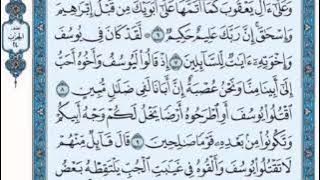 وَعَلَىٰٓ ءَالِ يَعْقُوبَ كَمَآ أَتَمَّهَا عَلَىٰٓ أَبَوَيْكَ مِن قَبْلُ إِبْرَٰهِيمَ
وَإِسْحَٰقَ إِنَّ رَبَّكَ عَلِيمٌ حَكِيمٌ ٦ لَّقَدْ كَانَ فِى يُوسُفَ
وَإِخْوَتِهِۦٓ ءَايَٰتٌ لِّلسَّآئِلِينَ ٧ إِذْ قَالُوا۟ لَيُوسُفُ وَأَخُوهُ أَحَبُّ
إِلَىٰٓ أَبِينَا مِنَّا وَنَحْنُ عُصْبَةٌ إِنَّ أَبَانَا لَفِى ضَلَٰلٍ مُّبِينٍ ٨
ٱقْتُلُوا۟ يُوسُفَ أَوِ ٱطْرَحُوهُ أَرْضًا يَخْلُ لَكُمْ وَجْهُ أَبِيكُمْ
وَتَكُونُوا۟ مِنۢ بَعْدِهِۦ قَوْمًا صَٰلِحِينَ ٩ قَالَ قَآئِلٌ مِّنْهُمْ
لَا تَقْتُلُوا۟ يُوسُفَ وَأَلْقُوهُ فِى غَيَٰبَتِ ٱلْجُبِّ يَلْتَقِطْهُ بَعْضُ